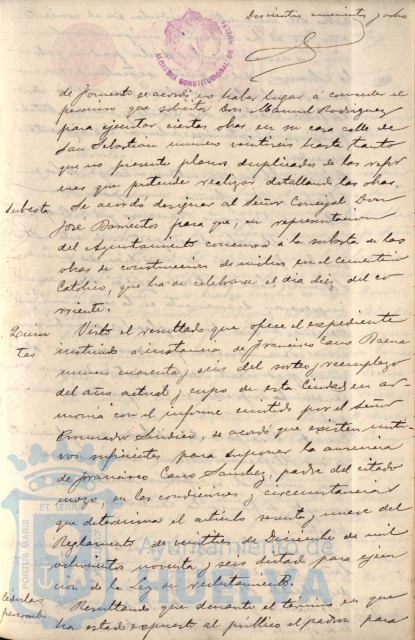 Doscientos cincuenta y ocho
ALCALDIA CONSTITUCIONAL DE HUELVA
de Fomento se acordó no haber lugar á conceder el
permiso que solicita Don Manuel Rodriguez
para ejecutar ciertas obras en su casa calle de
San Sebastian numero veintiseis hasta tanto
que no presente planos duplicados de las refor
mas que pretende realizar, detallando las obras.
Subasta
Se acordó designar al Señor Concejal Don
José Barrientos para que, en representacion
del Ayuntamiento concurra á la subasta de las
obras de construccion de nichos en el cementerio
Católico, que ha de celebrarse el dia diez del co
rriente.
Quin
tas
Visto el resultado que ofrece el expediente
instruido á instancia de Francisco Cano Baena
numero cuarenta y seis del sorteo y reemplazo
del año actual y cupo de esta Ciudad, en ar
monia con el informe emitido por el Señor
Procurador Sindico, se acordó que existen moti
vos suficientes para suponer la ausencia
de Francisco Cano Sanchez, padre del citado
mozo, en las condiciones y circunstancias
que determina el articulo sesenta y nueve del
Reglamento de veintitres de Diciembre de mil
ochocientos noventa y seis dictado para ejecu
cion de la Ley de reclutamiento.
Cedulas
personales
Resultando que durante el término en que
ha estado expuesto al público el padron para
PORTUS MARIS
ET TERRE
Ayuntamiento de
HUELVA